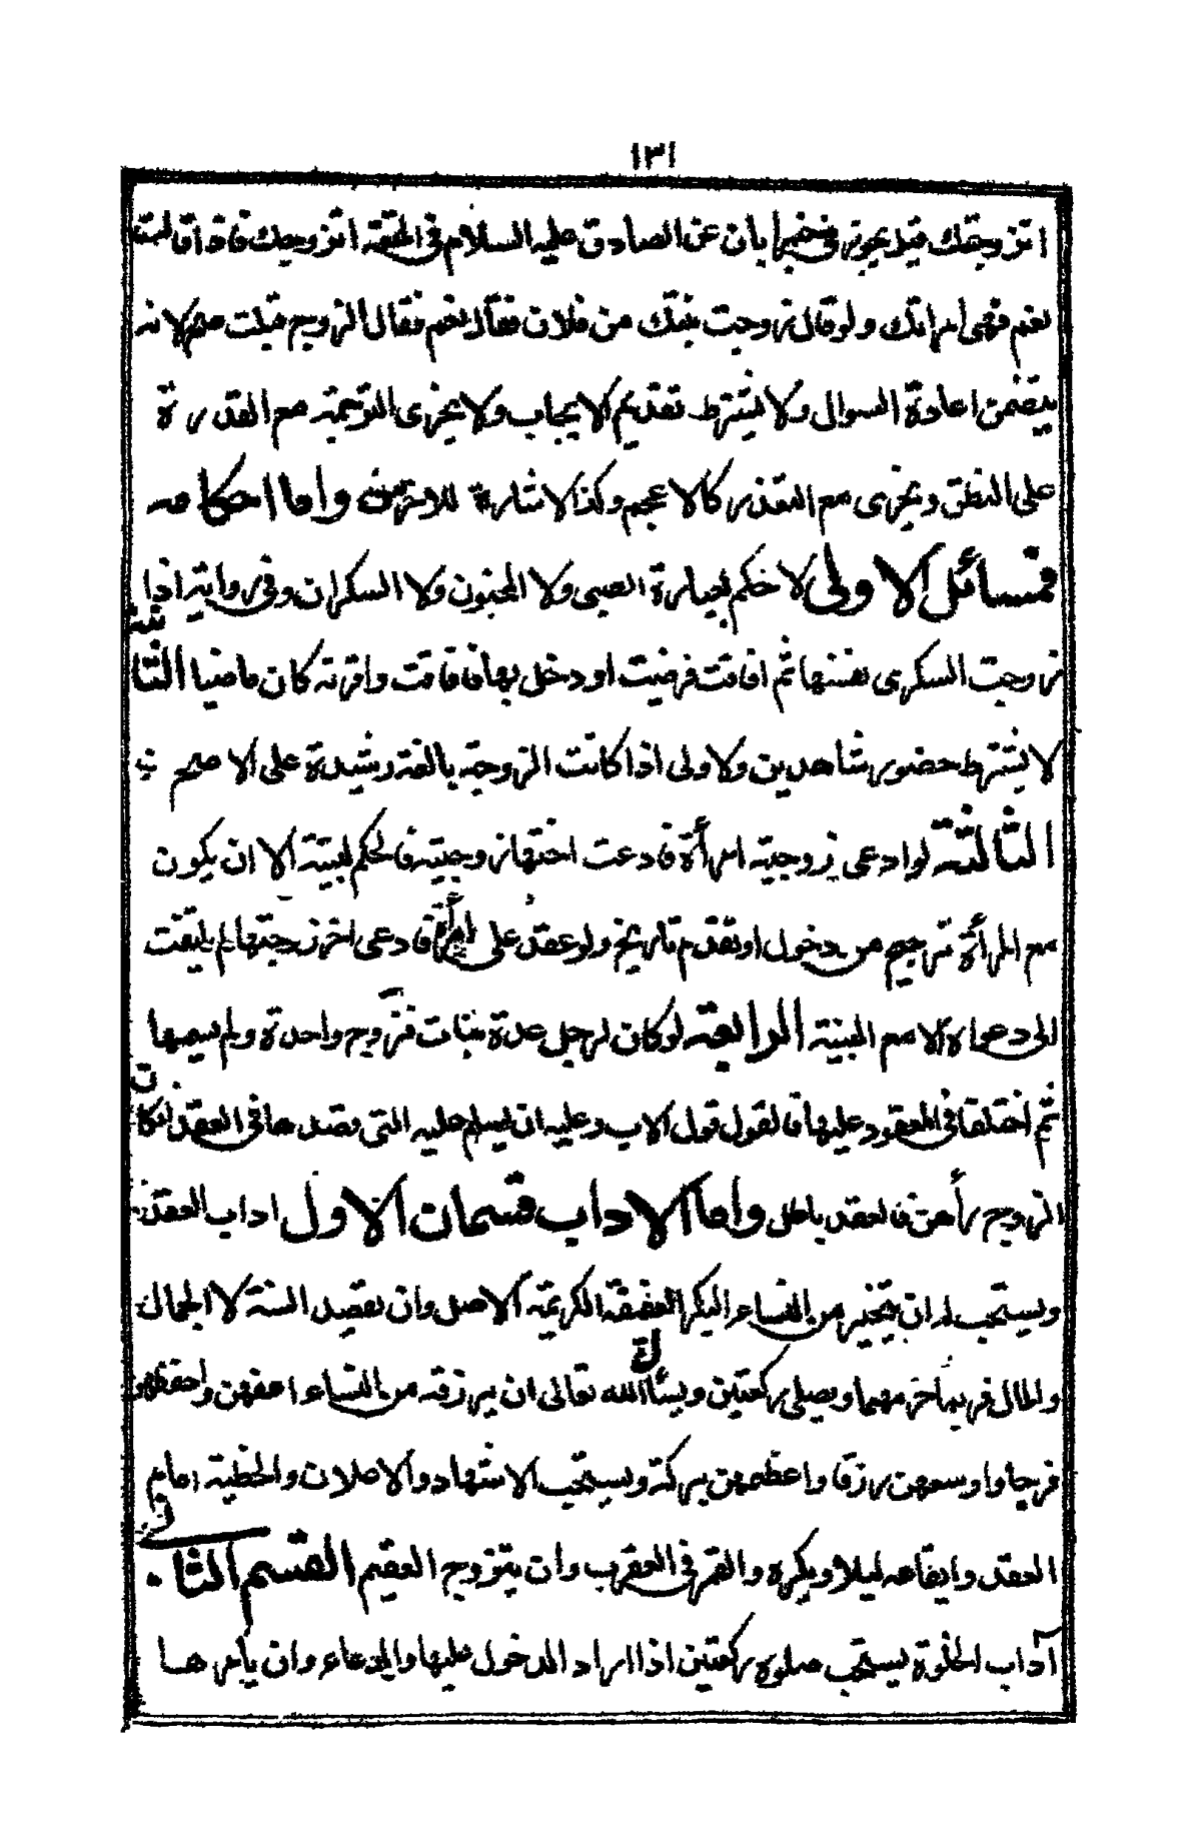 ١٣١
اتزوجتك قيل يجوز فى خبر ابان عن الصادق عليه السلام فى المتعة اتزوجك فاذا قالت
نعم فهى امراتك ولو قال زوجت بنتك من فلان فقال نعم فقال الزوج قبلت صح لانه
يتضمن اعادة السوال ولا يشترط تقديم الايجاب ولا يجزى الترجمة مع القدرة
على النطق ويجزى مع التعذر كالاعجم وكذا الاشارة للاخرس واما احكامه
فمسائل الاولى لا حكم لعبارة الصبى ولا المجنون ولا السكران وفى رواية اذا
زوجت السكرى نفسها ثم افاقت فرضيت او دخل بها فافاقت واقرته كان ماضيا الثانية
لا يشترط حضور شاهدين ولا ولى اذا كانت الزوجة بالغة رشيدة على الاصح
الثالثة لو ادعى زوجية امرأة فادعت اختها زوجيته فالحكم لبينة الا ان يكون
مع المرأة ترجيح من دخول او تقدم تاريخ ولو عقد على امرأة فادعى اخر زوجتها لم يلتفت
الى دعواه الا مع البينة الرابعة لو كان لرجل عدة بنات فزوج واحدة ولم يسمها
ثم اختلفا فى المعقود عليها فالقول قول الاب وعليه ان يسلم اليه التى قصدها فى العقد ان كان
الزوج رأهن فالعقد باطل واما الاداب قسمان الاول اداب العقد
ويستحب له ان يتخير من النساء البكر العفيفة الكريمة الاصل وان يقصد السنة لا الجمال
والمال فربما حرمهما ويصلى ركعتين ويسئال الله تعالى ان يرزقه من النساء اعفهن واحفظهن
فرجا واوسعهن رزقا واعظمهن بركة ويستحب الاشهاد والاعلان والخطبة امام
العقد وايقاعه ليلا ويكره والقمر فى العقرب وان يتزوج العقيم القسم الثانى
آداب الخلوة يستحب صلوة ركعتين اذا اراد الدخول عليها والدعاء وان يأمرها